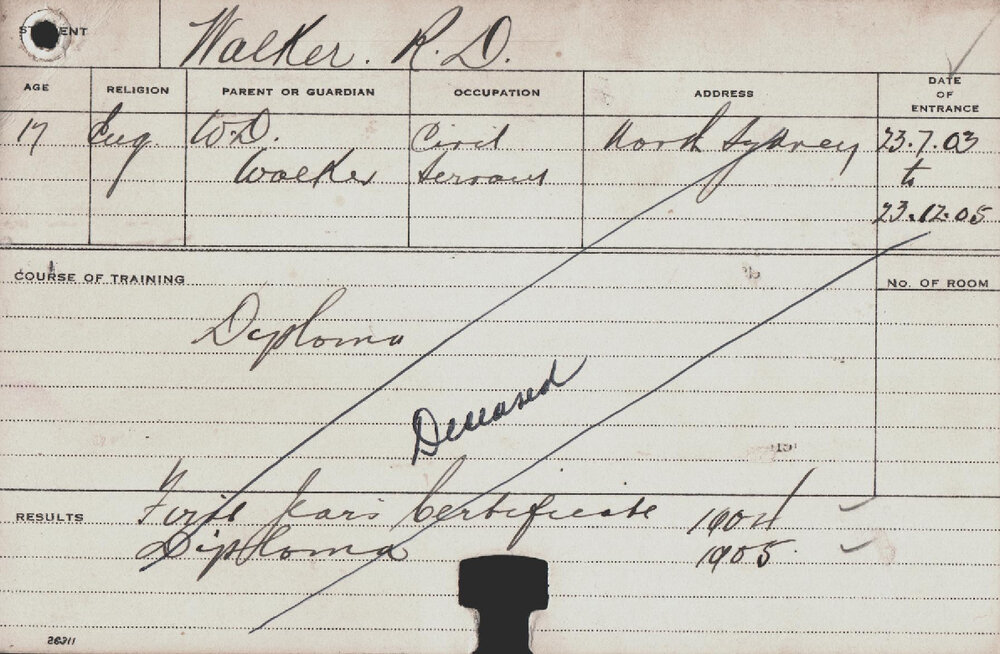 STUDENT Walker. R.D.
AGE RELIGION PARENT OR GUARDIAN OCCUPATION ADDRESS DATE OF ENTRANCE
17 Eng. W.D. Civil North Sydney 23.7.03
Walker Servant to
23.12.05
COURSE OF TRAINING No. OF ROOM
Diploma
Deceased
RESULTS First Years Certificate 1904
Diploma 1905.
26311